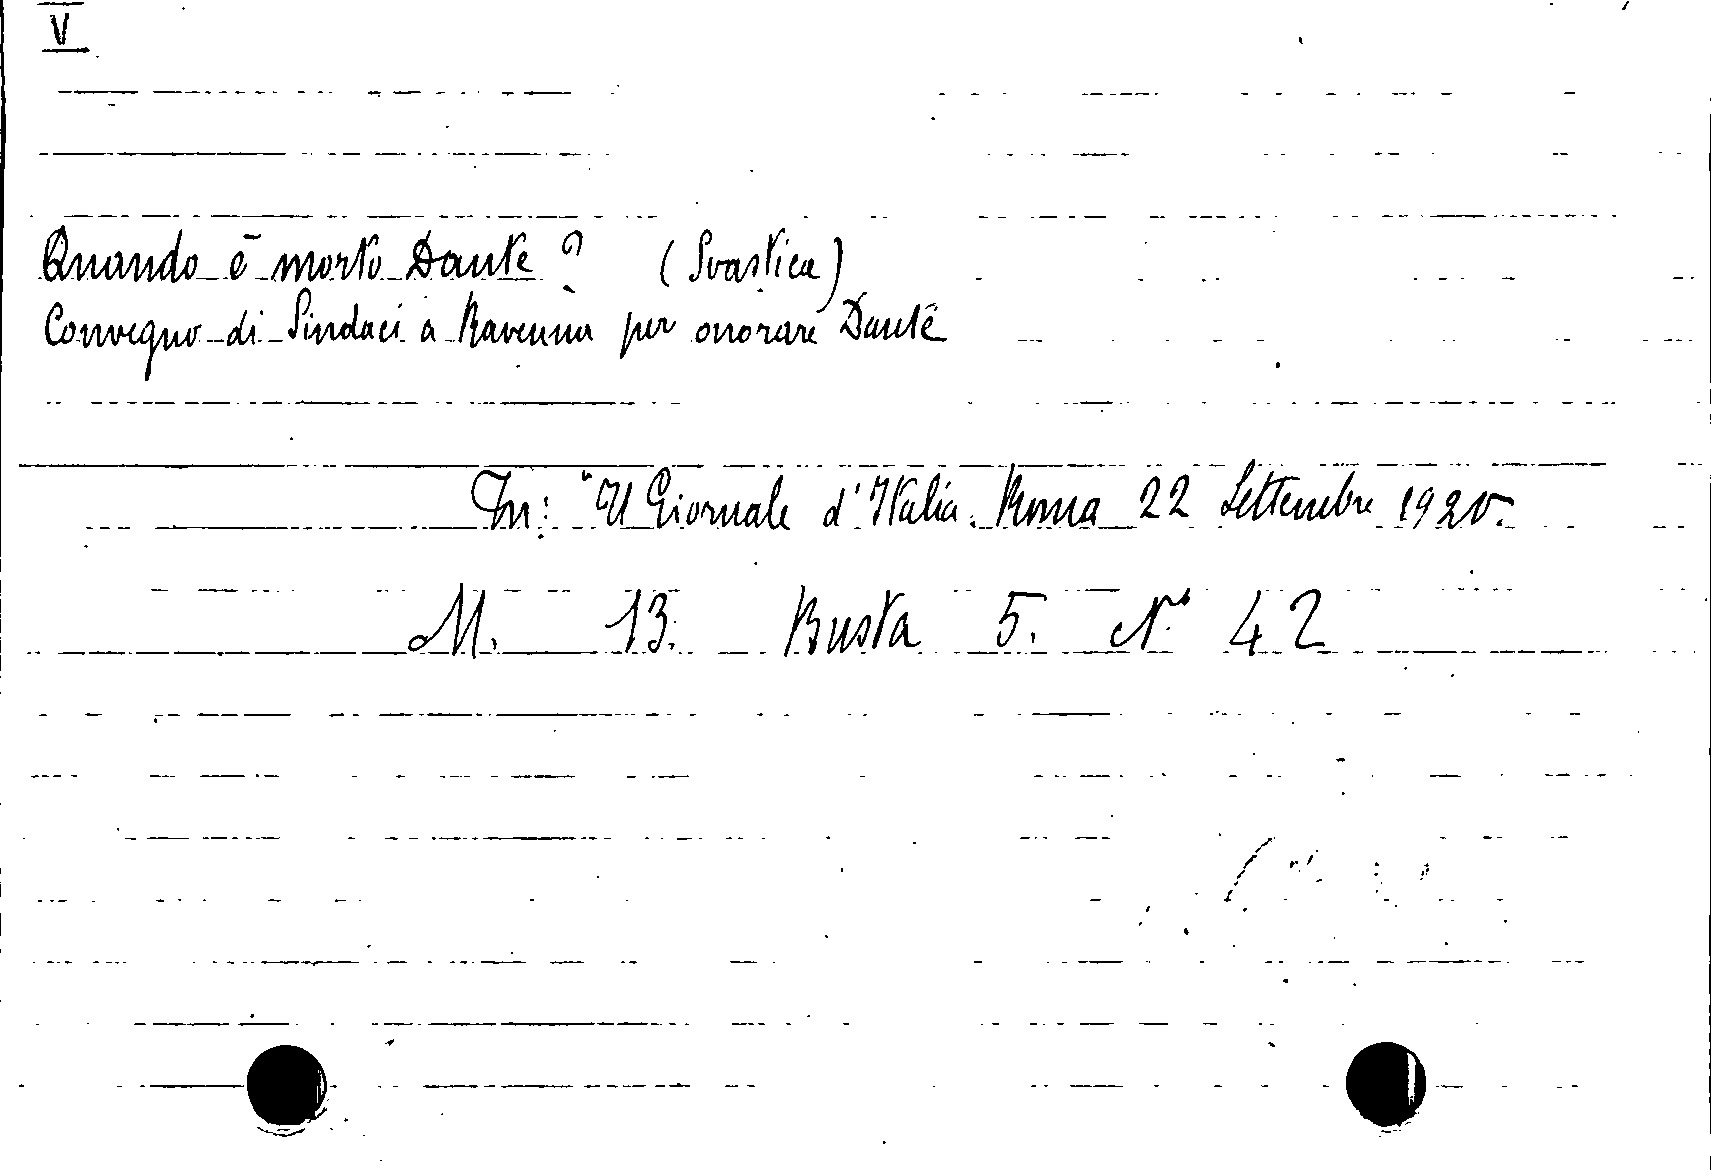 V
Quando è morto Dante? (Svastica)
Convegno di Sindaci a Ravenna per onorare Dante
In: "Il Giornale d'Italia. Roma 22 Settembre 1920.
M. 13. Busta 5. N° 42